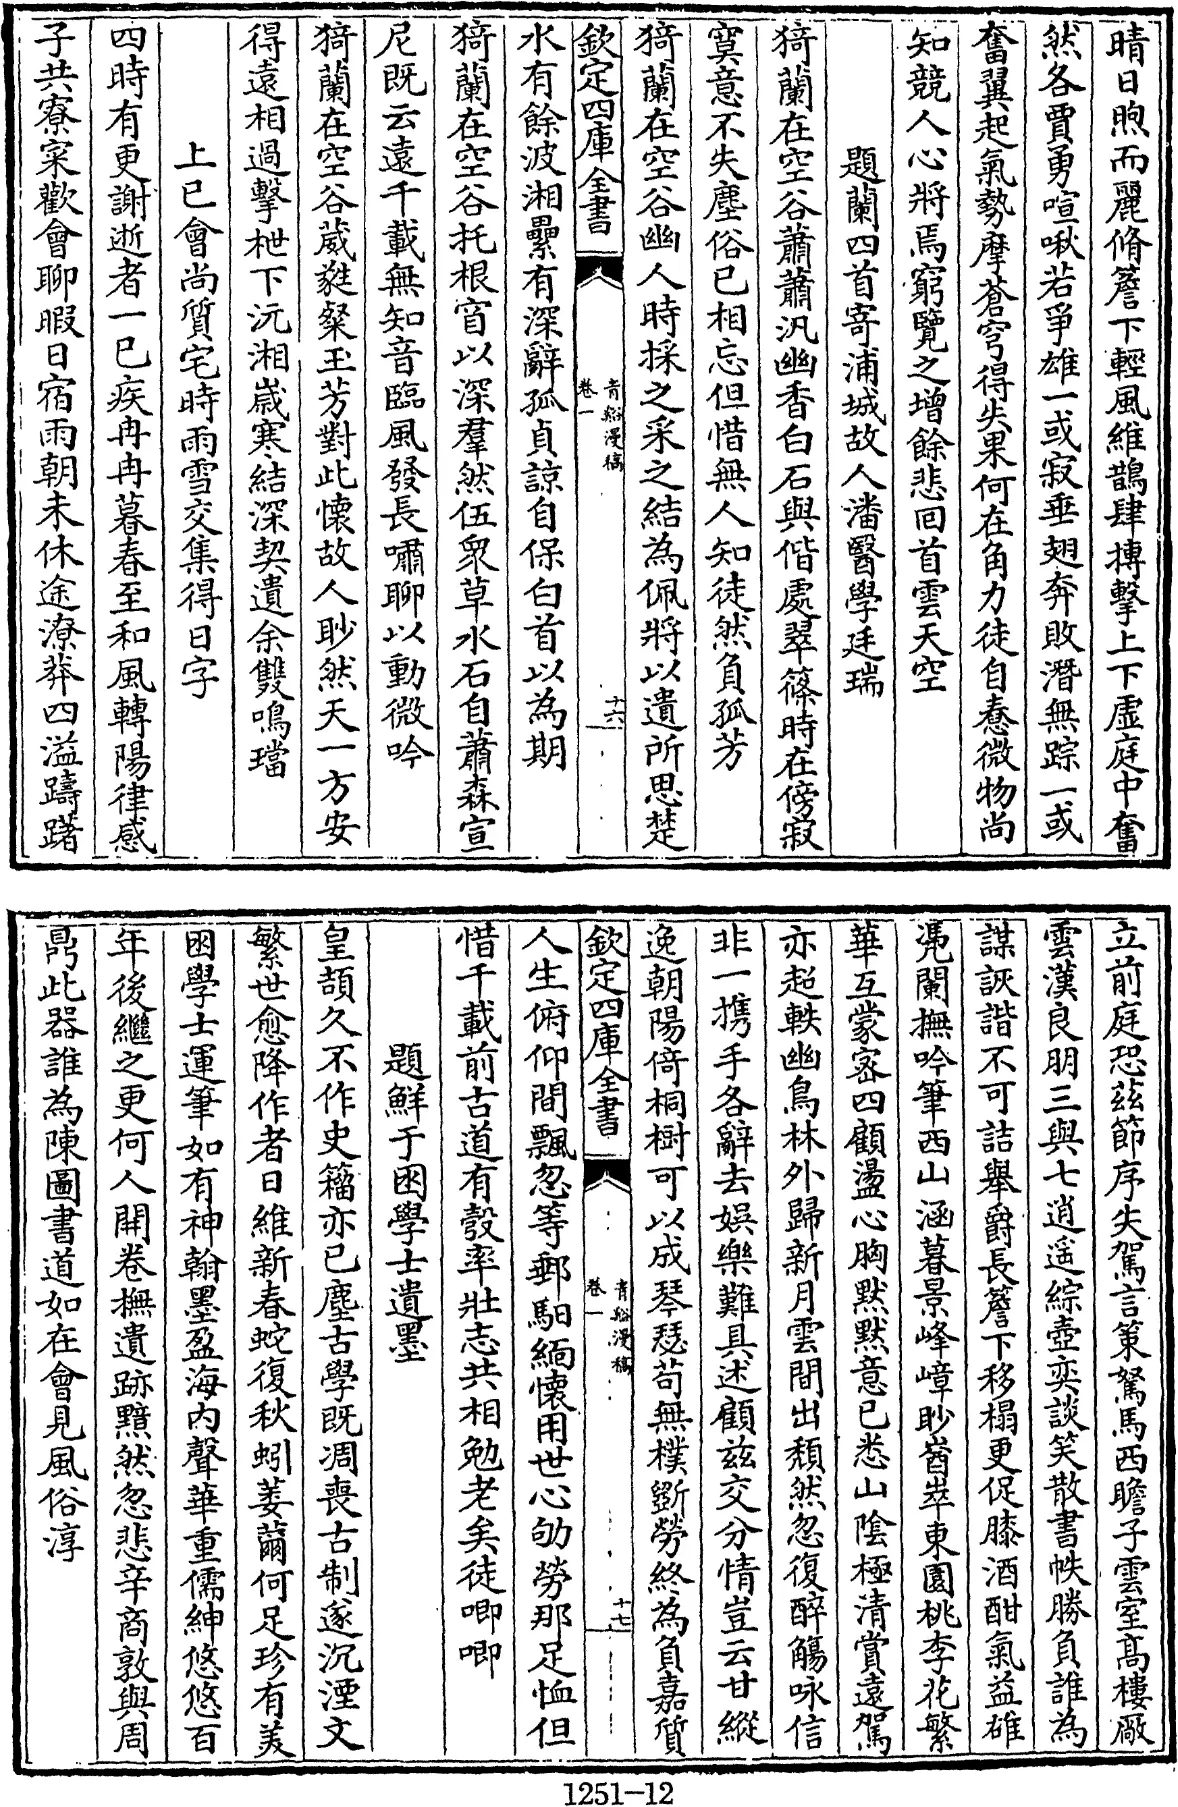 晴日煦而麗脩簷下輕風維鵲肆摶擊上下虛庭中奮
然各賈勇喧啾若爭雄一或寂垂翅奔敗潛無踪一或
奮翼起氣勢摩蒼穹得失果何在角力徒自惷微物尚
知競人心將焉窮覽之增餘悲回首雲天空
題蘭四首寄浦城故人潘醫學廷瑞
猗蘭在空谷蕭蕭汎幽香白石與偕處翠篠時在傍寂
寞意不失塵俗已相忘但惜無人知徒然負孤芳
猗蘭在空谷幽人時採之采之結為佩將以遺所思楚
欽定四庫全書
青谿漫稿
卷一
十六
水有餘波湘纍有深辭孤貞諒自保白首以為期
猗蘭在空谷托根窅以深羣然伍衆草水石自蕭森宣
尼既云遠千載無知音臨風發長嘯聊以動微吟
猗蘭在空谷葳蕤粲玉芳對此懷故人眇然天一方安
得遠相過擊枻下沅湘歲寒結深契遺余雙鳴璫
上巳會尚質宅時雨雪交集得日字
四時有更謝逝者一已疾冉冉暮春至和風轉陽律感
子共寮寀歡會聊暇日宿雨朝未休途潦莽四溢躊躇
立前庭恐茲節序失駕言策駑馬西瞻子雲室高樓敞
雲漢良朋三與七逍遙綜壺奕談笑散書帙勝負誰為
謀詼諧不可詰舉爵長簷下移榻更促膝酒酣氣益碓
凭闌撫吟筆西山涵暮景峰嶂眇崷崒東園桃李花繁
華互蒙密四顧盪心胸默默意已悉山陰極清賞遠駕
亦超軼幽鳥林外歸新月雲間出頹然忽復醉觴咏信
非一攜手各辭去娛樂難具述顧茲交分情豈云甘縱
逸朝陽倚桐樹可以成琴瑟苟無樸斵勞終為負嘉質
欽定四庫全書
青谿漫稿
卷一
十七
人生俯仰間飄忽等郵馹緬懷用世心劬勞那足恤但
惜千載前古道有彀率壯志共相勉老矣徒唧唧
題鮮于困學士遺墨
皇頡久不作史籀亦已塵古學既凋喪古制遂沉湮文
繁世愈降作者日維新春蛇復秋蚓萎薾何足珍有美
困學士運筆如有神翰墨盈海內聲華重儒紳悠悠百
年後繼之更何人開卷撫遺跡黯然忽悲辛商敦與周
鼎此器誰為陳圖書道如在會見風俗淳
1251-12